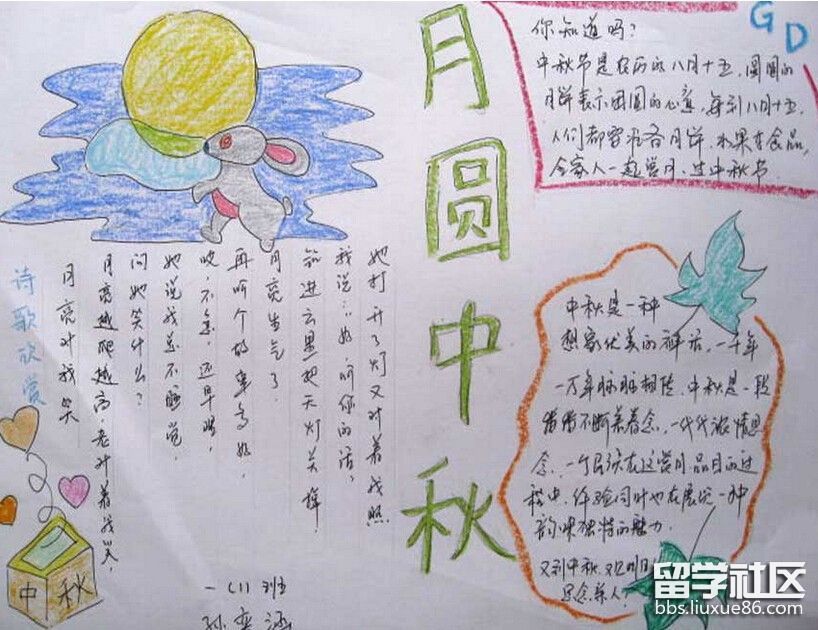 月圆中秋
GD
你知道吗？
中秋节是农历的八月十五,圆圆的
月饼表示团圆的心意,每到八月十五,
人们都要准备月饼、水果等食品,
全家人一起赏月、过中秋节.
诗歌欣赏
月亮对我笑
月亮越爬越高,老对着我笑,
问她笑什么?
她说我总不睡觉,
不急,还早哦,
再听个故事多好,
月亮生气了,
进云里把天灯关掉,
我说:"好,听你的话,
她打开了灯又对着我照
中秋是一种
想家优美的神话,一千年
一万年脉脉相传,中秋是一段
常常不断 着念,一代代浓情思
念,一个民族在这赏月品月的过
程中,体验同时也在展现一种
韵味独特的魅力.
又到中秋,又
思念亲人!
中秋
一(1)班
孙奕涵
留学社区
bbs.liuxue86.com